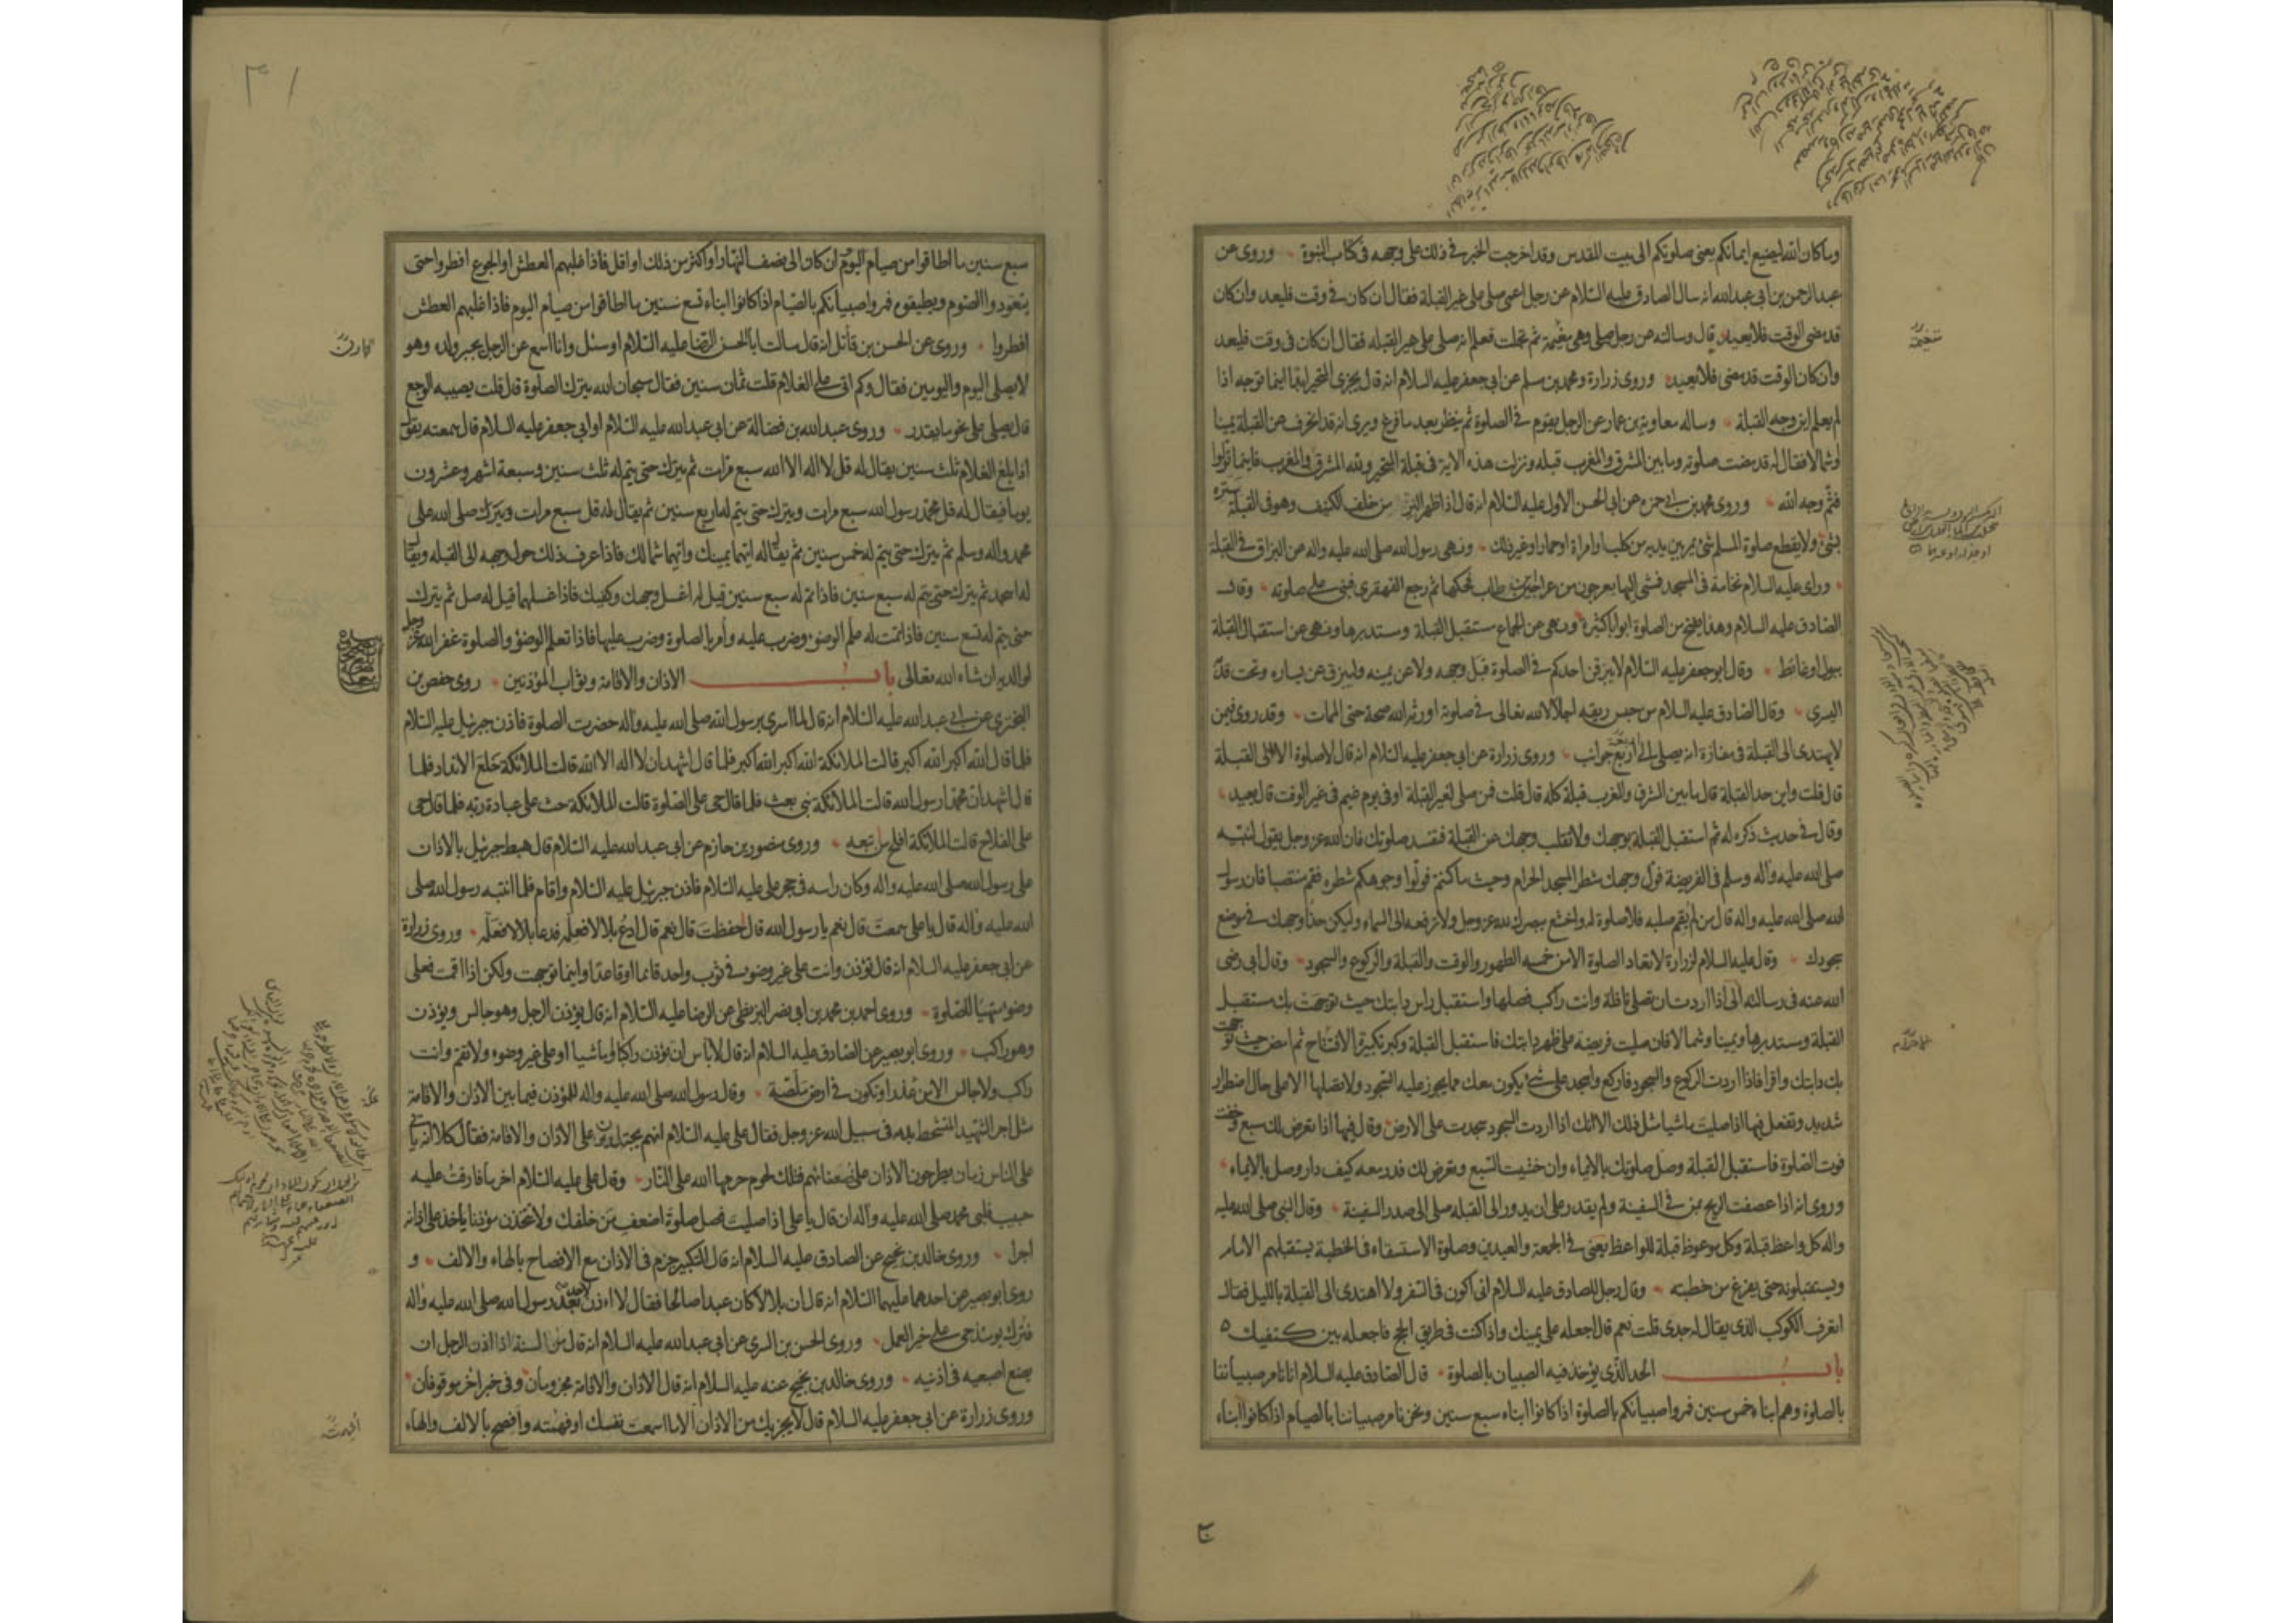 وما كان الله ليضيع ايمانكم يعنى صلوتكم الى بيت المقدس وقد اخرجت الخبر فى ذلك على وجهه فى كتاب النبوة وروى عن
عبد الرحمن بن ابى عبدالله انه سال الصادق عليه السلام عن رجل اعمى صلى على غير القبلة فقال ان كان فى وقت فليعد وان كان
قد مضى الوقت فلا يعيد قال وسالته عن رجل صلى وهى مغيمة ثم تجلت فعلم انه صلى على غير القبله فقال ان كان فى وقت فليعد
وان كان الوقت قد مضى فلا يعيد وروى زرارة ومحمد بن مسلم عن ابى جعفر عليه السلام انه قال يجزى المتحير ابدا اينما توجه اذا
لم يعلم اين وجه القبلة وساله معاوية بن عمار عن الرجل يقوم فى الصلوة ثم ينظر بعد ما فرغ ويرى انه قد انحرف عن القبلة يمينا
وشمالا فقال له قد مضت صلوته وما بين المشرق والمغرب قبله ونزلت هذه الاية فى قبلة المتحير ولله المشرق والمغرب فاينما تولوا
فثم وجه الله وروى محمد بن ابى حمزه عن ابى الحسن الاول عليه السلام انه قال اذا ظهر النز من خلف الكنيف وهو فى القبلة يستره
بشئ ولا يقطع صلوة المسلم شئ يمر بين يديه من كلب او امراة او حمار او غير ذلك ونهى رسول الله صلى الله عليه واله عن البزاق فى القبلة
وراى عليه السلام نخامة فى المسجد فمشى اليها بعرجون من عراجين ابن طاب فحكها ثم رجع القهقرى فبنى على صلوته وقال
الصادق عليه السلام وهذا يفتح من الصلوة ابوابا كثيرة ونهى عن الجماع مستقبل القبلة ومستدبرها ونهى عن استقبال القبلة
ببول او غائط وقال ابو جعفر عليه السلام لا يبزقن احدكم فى الصلوة قبل وجهه ولا عن يمينه وليبزق عن يساره وتحت قدمه
اليسرى وقال الصادق عليه السلام من حبس ريقه اجلالا لله تعالى فى صلوته اورثه الله صحة حتى الممات وقد روى فيمن
لا يهتدى الى القبلة فى مفازة انه يصلى الى اربع جوانب وروى زرارة عن ابى جعفر عليه السلام انه قال لا صلوة الا الى القبلة
قال قلت واين حد القبلة قال ما بين المشرق والمغرب قبلة كله قال قلت فمن صلى لغير القبلة او فى يوم غيم فى غير الوقت قال يعيد
وقال فى حديث ذكره له ثم استقبل القبلة بوجهك ولا تقلب وجهك عن القبلة فتفسد صلوتك فان الله عز وجل يقول لنبيه
صلى الله عليه واله وسلم فى الفريضة فول وجهك شطر المسجد الحرام وحيث ما كنتم فولوا وجوهكم شطره فقم منتصبا فان رسول
الله صلى الله عليه واله قال من لم يقم صلبه فلا صلوة له واخشع ببصرك لله عز وجل ولا ترفعه الى السماء وليكن حذاء وجهك فى موضع
سجودك وقال عليه السلام لزرارة لا تعاد الصلوة الا من خمسه الطهور والوقت والقبلة والركوع والسجود وقال ابى رضى
الله عنه فى رسالته الى اذا اردت ان تصلى نافلة وانت راكب فصلها واستقبل راس دابتك حيث توجهت بك مستقبل
القبلة ومستدبرها ويمينا وشمالا فان صليت فريضة على ظهر دابتك فاستقبل القبلة وكبر تكبيرة الافتتاح ثم امض حيث توجهت
بك دابتك واقرا فاذا اردت الركوع والسجود فاركع واسجد على شئ يكون معك مما يجوز عليه السجود ولا تصلها الا على حال اضطرار
شديد وتفعل فيها اذا صليت ماشيا مثل ذلك الا انك اذا اردت السجود سجدت على الارض وقال فيها اذا تعرض لك سبع وخفت
فوت الصلوة فاستقبل القبلة وصل صلوتك بالايماء وان خشيت السبع وتعرض لك فدر معه كيف دار وصل بالايماء
وروى انه اذا عصفت الريح بمن فى السفينة ولم يقدر على ان يدور الى القبله صلى الى صدر السفينة وقال النبى صلى الله عليه
واله كل واعظ قبلة وكل موعوظ قبلة للواعظ يعنى فى الجمعة والعيدين وصلوة الاستسقاء فى الخطبة يستقبلهم الامام
ويستقبلونه حتى يفرغ من خطبته وقال رجل للصادق عليه السلام انى اكون فى السفر ولا اهتدى الى القبلة بالليل فقال
اتعرف الكوكب الذى يقال له جدى قلت نعم قال اجعله على يمينك واذا كنت فى طريق الحج فاجعله بين كتفيك
باب الحد الذى يؤخذ فيه الصبيان بالصلوة قال الصادق عليه السلام انا نامر صبياننا
بالصلوة وهم ابناء خمس سنين فمروا صبيانكم بالصلوة اذا كانوا ابناء سبع سنين ونحن نامر صبياننا بالصيام اذا كانوا ابناء
٣١
سبع سنين ما اطاقوا من صيام اليوم ان كان الى نصف النهار او اكثر من ذلك او اقل فاذا غلبهم العطش او الجوع افطروا حتى
يتعودوا الصوم ويطيقوه فمروا صبيانكم بالصيام اذا كانوا ابناء تسع سنين ما اطاقوا من صيام اليوم فاذا غلبهم العطش
افطروا وروى عن الحسن بن قاتل انه قال سالت ابا الحسن الرضا عليه السلام او سئل وانا اسمع عن الرجل يجبر ولده وهو
لا يصلى اليوم واليومين فقال وكم اتى على الغلام قلت ثمان سنين فقال سبحان الله يترك الصلوة قال قلت يصيبه الوجع
قال يصلى على نحو ما يقدر وروى عبدالله بن فضالة عن ابى عبدالله عليه السلام او ابى جعفر عليه السلام قال سمعته يقول
اذا بلغ الغلام ثلث سنين يقال له قل لا اله الا الله سبع مرات ثم يترك حتى يتم له ثلث سنين وسبعة اشهر وعشرون
يوما فيقال له قل محمد رسول الله سبع مرات ويترك حتى يتم له اربع سنين ثم يقال له قل سبع مرات ويترك صلى الله على
محمد واله وسلم ثم يترك حتى يتم له خمس سنين ثم يقال له ايهما يمينك وايهما شمالك فاذا عرف ذلك حول وجهه الى القبله ويقال
له اسجد ثم يترك حتى يتم له سبع سنين فاذا تم له سبع سنين قيل له اغسل وجهك وكفيك فاذا غسلهما قيل له صل ثم يترك
حتى يتم له تسع سنين فاذا تمت له علم الوضوء وضرب عليه وامر بالصلوة وضرب عليها فاذا تعلم الوضوء والصلوة غفر الله عز وجل
لوالديه ان شاء الله تعالى باب الاذان والاقامة وثواب المؤذنين روى حفص بن
البخترى عن ابى عبدالله عليه السلام انه قال لما اسرى برسول الله صلى الله عليه واله حضرت الصلوة فاذن جبرئيل عليه السلام
فلما قال الله اكبر الله اكبر قالت الملائكة الله اكبر الله اكبر فلما قال اشهد ان لا اله الا الله قالت الملائكة خلع الانداد فلما
قال اشهد ان محمدا رسول الله قالت الملائكة نبى بعث فلما قال حى على الصلوة قالت الملائكة حث على عبادة ربه فلما قال حى
على الفلاح قالت الملائكة افلح من تبعه وروى منصور بن حازم عن ابى عبدالله عليه السلام قال هبط جبرئيل بالاذان
على رسول الله صلى الله عليه واله وكان راسه فى حجر على عليه السلام فاذن جبرئيل عليه السلام واقام فلما انتبه رسول الله صلى
الله عليه واله قال يا على سمعت قال نعم يا رسول الله قال احفظت قال نعم قال ادع بلالا فعلمه فدعا بلالا فعلمه وروى زرارة
عن ابى جعفر عليه السلام انه قال تؤذن وانت على غير وضوء فى ثوب واحد قائما او قاعدا واينما توجهت ولكن اذا اقمت فعلى
وضوء متهيا للصلوة وروى احمد بن محمد بن ابى نصر البزنطى عن الرضا عليه السلام انه قال يؤذن الرجل وهو جالس ويؤذن
وهو راكب وروى ابو بصير عن الصادق عليه السلام انه قال لا باس ان تؤذن راكبا او ماشيا او على غير وضوء ولا تقم وانت
راكب ولا جالس الا من علة او تكون فى ارض ملصة وقال رسول الله صلى الله عليه واله للمؤذن فيما بين الاذان والاقامة
مثل اجر الشهيد المتشحط بدمه فى سبيل الله عز وجل فقال على عليه السلام انهم يجتلدون على الاذان والاقامة فقال كلا انه ياتى
على الناس زمان يطرحون الاذان على ضعفائهم فتلك لحوم حرمها الله على النار وقال على عليه السلام اخر ما فارقت عليه
حبيب قلبى محمد صلى الله عليه واله ان قال يا على اذا صليت فصل صلوة اضعف من خلفك ولا تتخذن مؤذنا ياخذ على اذانه
اجرا وروى خالد بن نجيح عن الصادق عليه السلام انه قال التكبير جزم فى الاذان مع الافصاح بالهاء والالف و
روى ابو بصير عن احدهما عليهما السلام انه قال ان بلالا كان عبدا صالحا فقال لا اؤذن لاحد بعد رسول الله صلى الله عليه واله
فترك يومئذ حى على خير العمل وروى الحسن بن السرى عن ابى عبدالله عليه السلام انه قال من السنة اذا اذن الرجل ان
يضع اصبعيه فى اذنيه وروى خالد بن نجيح عنه عليه السلام انه قال الاذان والاقامة مجزومان وفى خبر اخر موقوفان
وروى زرارة عن ابى جعفر عليه السلام قال لا يجزيك من الاذان الا ما اسمعت نفسك او فهمته وافصح بالالف والهاء